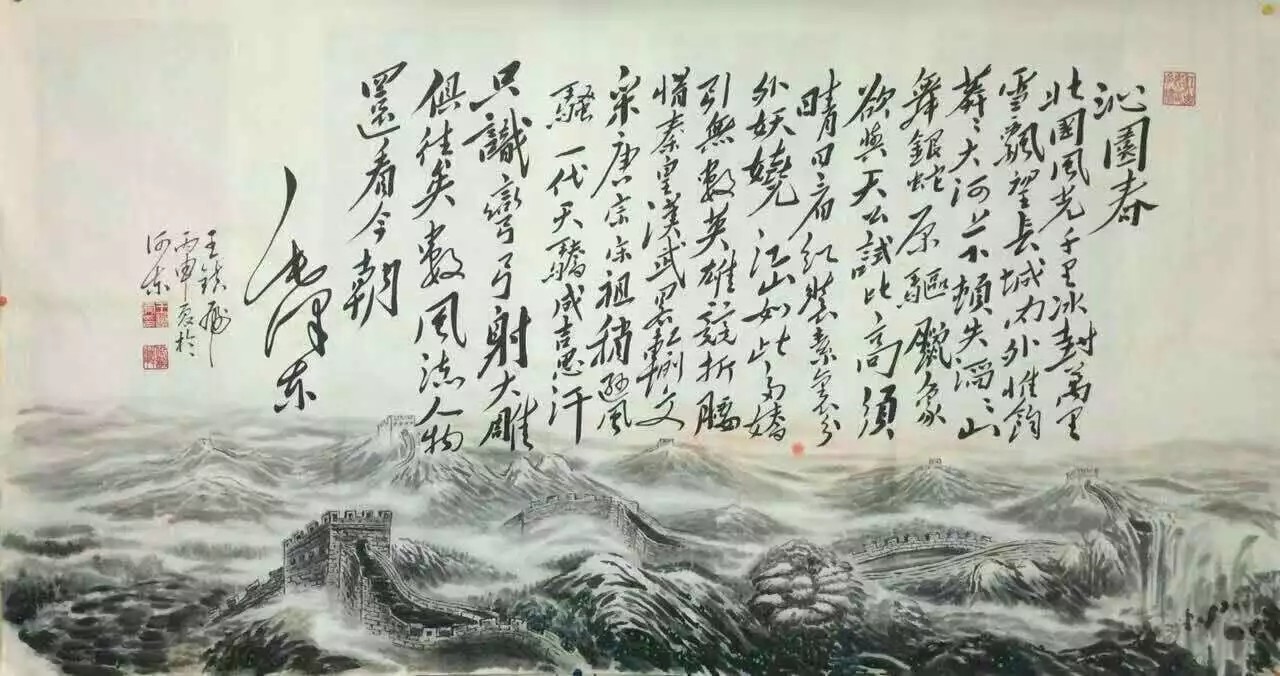 沁園春
北國風光千里冰封萬里
雪飄望長城內外惟餘
莽〻大河上下頓失滔〻山
舞銀蛇原驅蠟象
欲與天公試比高須
晴日看紅裝素裹分
外妖嬈江山如此多嬌
引無數英雄競折腰
惜秦皇漢武略輸文
采唐宗宋祖稍遜風
騷一代天驕成吉思汗
只識彎弓射大雕
俱往矣數風流人物
還看今朝
毛澤東
王
丙申夏於
河東